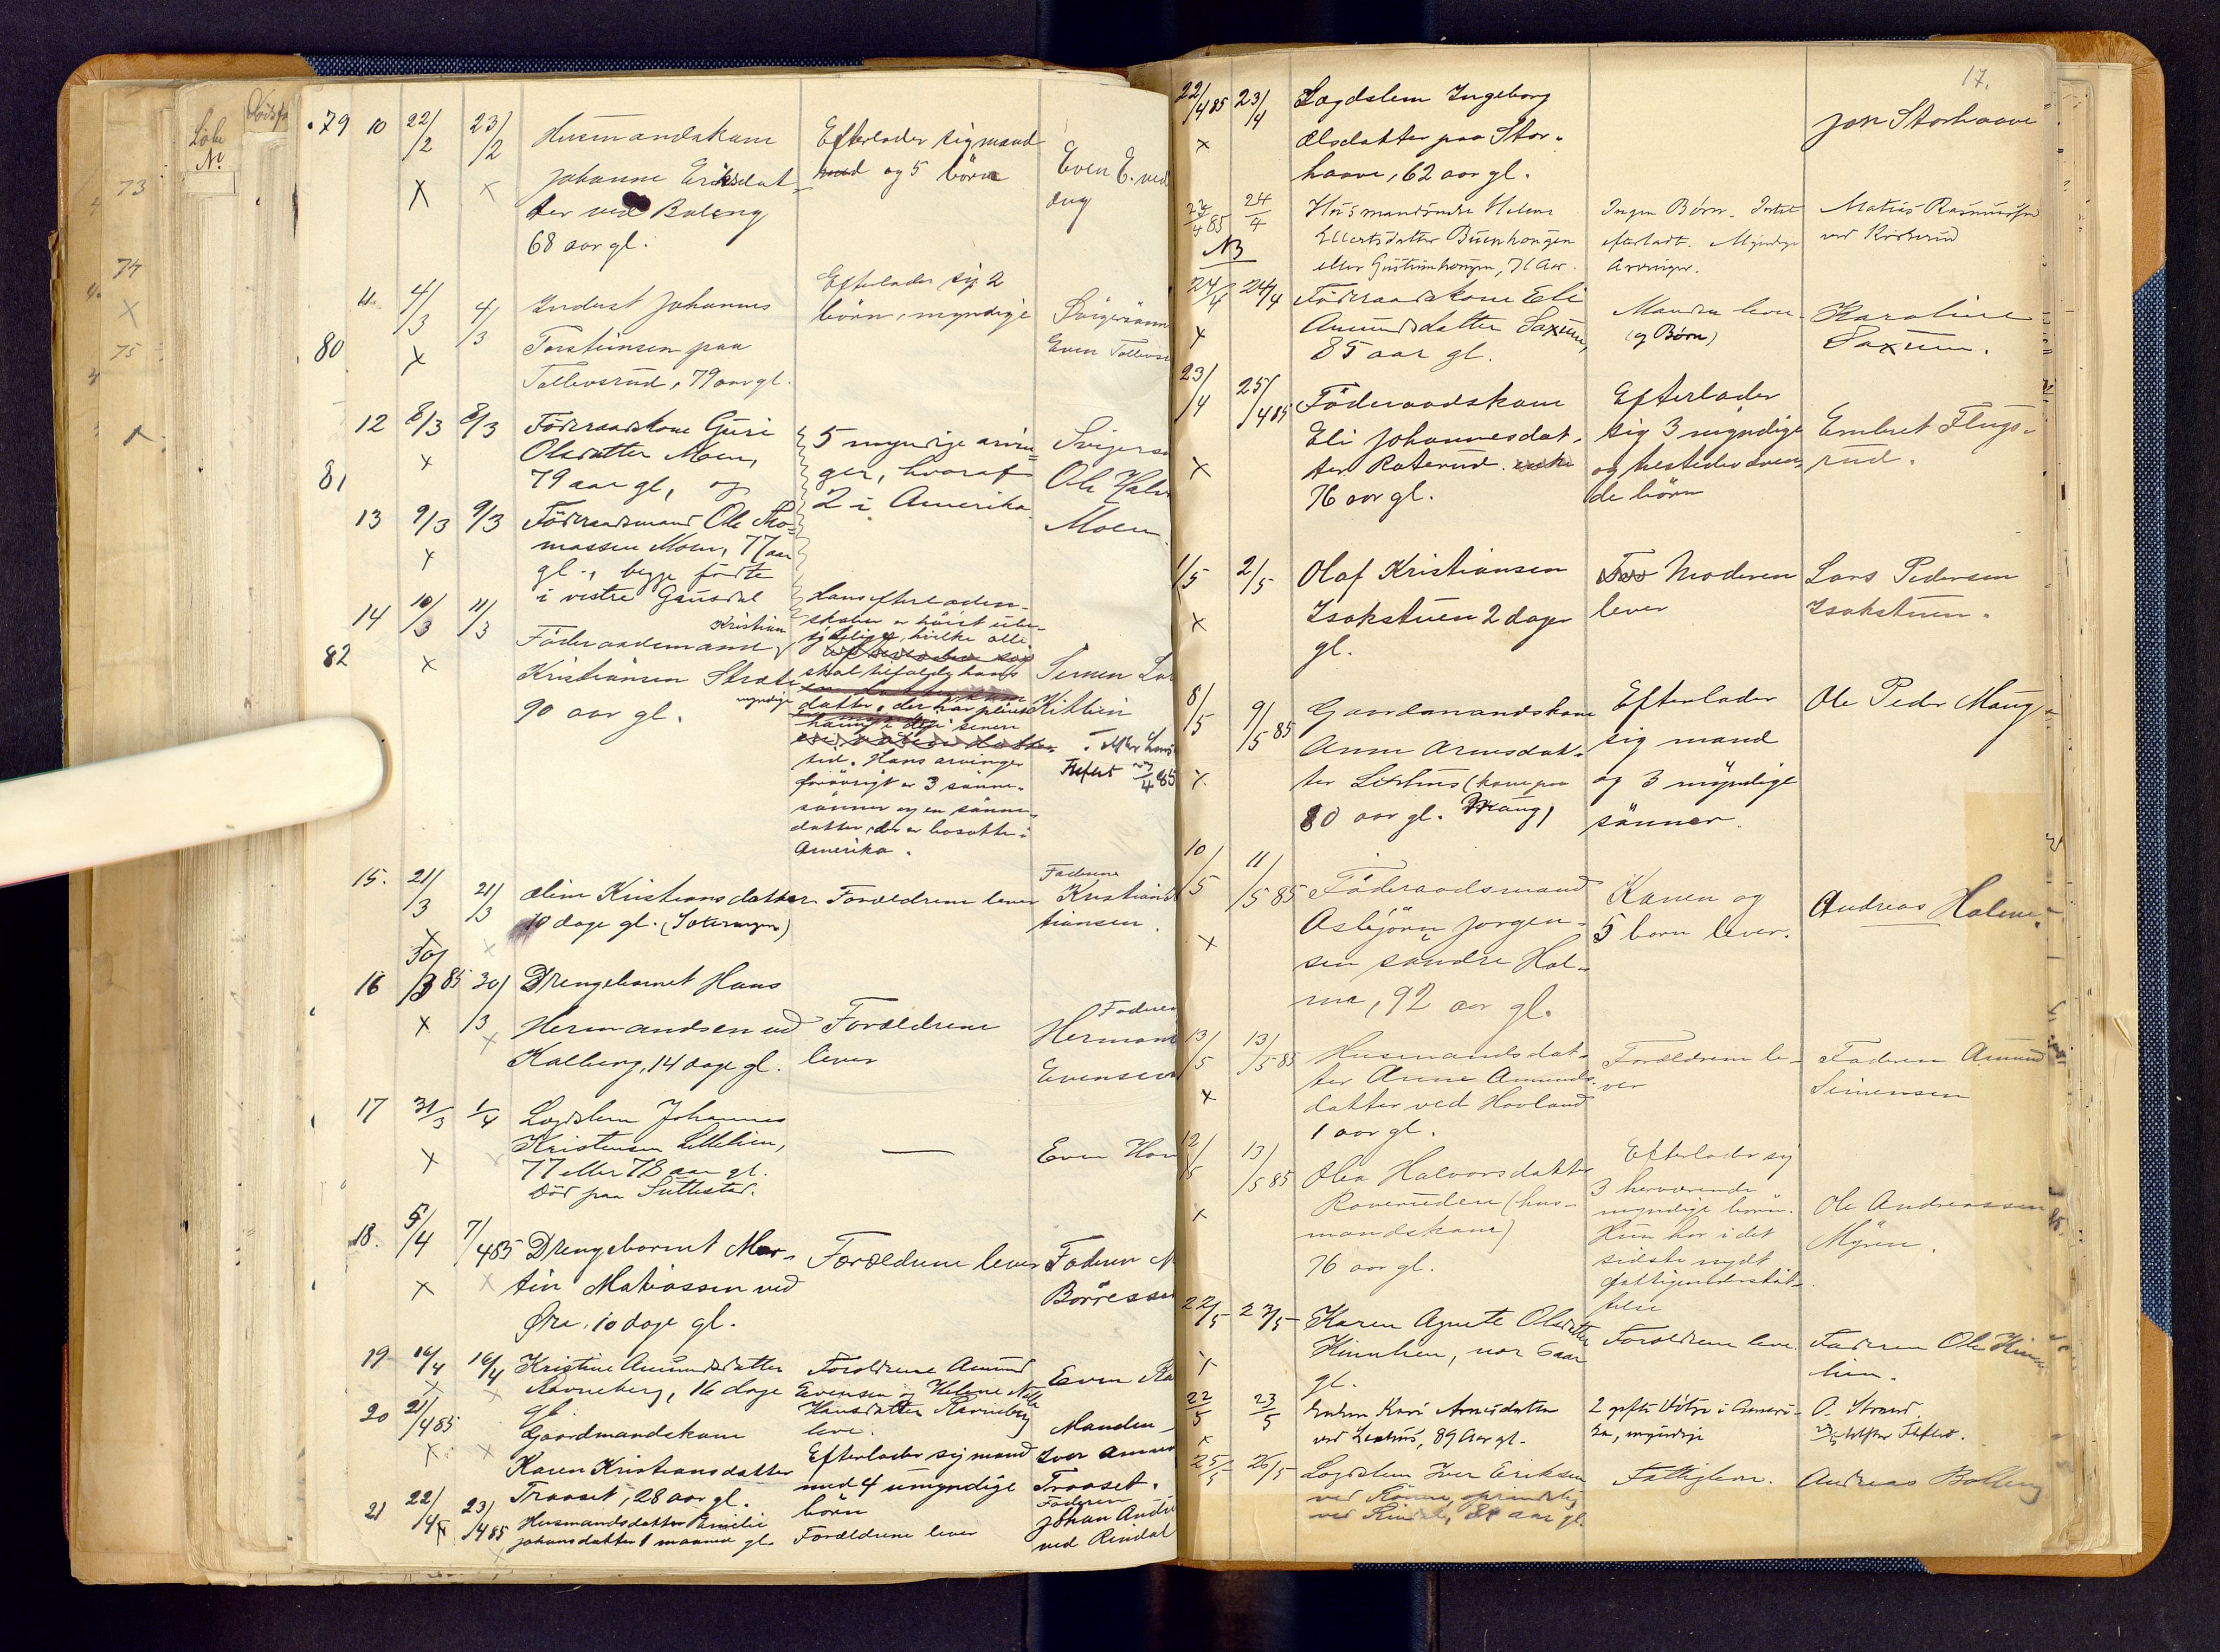 Löbe
No.
73
74
75
79 10 22/2 23/2 Husmandskane Efterlader sig mand
Johanne Eriksdat- med og 5 börn Even E. ved
ter ved Baleng
68 aar gl.
11. 4/3 4/3 Inderst Johannes Efterlader sig 2
80 Torsteinsen paa börn, myndige Svigersönn
Tollevsrud, 79 aar gl. Even
12 8/3 8/3 Föderaadskone Guri
Olsdatter Moen, 5 myndige arvin-
81 79 aar gl, og ger, hvoraf Ole
13 9/3 9/3 Föderaadsmand Ole Tho- 2 i Amerika Moen.
massen Moen, 77 aar
gl., begge födte
i vestre Gausdal
14 10/3 11/3 Kristian Hans efterladen-
Föderaadsmand skaber er höist ube-
82 Kristiansen Stræte tydelige, hvilke alle
90 aar gl. skal tilfalde hans
myndige datter, der har pleiet
ham i
Hans arvinger
forövrigt er 3 sönne-
sönner og en sönne-
datter, der er bosatte i
Amerika.
Simen
Kittlien
4/85
15. 21/3 21/3 Kristiansdatter Forældrene lever Faderen
10 dage gl. Kristian
tiansen.
16 30/3 85 30/3 Drengebarnet Hans
Hermandsen ved Forældrene Faderen
Kalberg, 14 dage gl. lever Herman
Evensen
17 31/3 1/4 Lægdslem Johannes
Kristensen Lillelien, — Even
77 eller 78 aar gl.
död paa Suttestad.
18. 5/4 7/4 85 Drengebarnet Mar- Forældrene lever Faderen M
tin Matiassen ved Börresse
Øra, 10 dage gl.
19 16/4 16/4 Kristine Amundsdatter Forældrene Amund
Ravneberg, 16 dage Evensen og Helene Even Ra
gl. Hansdatter Ravneberg
20 21/4 85 Gaardmandskone leve. Manden
Karen Kristiansdatter Efterlader sig mand Iver
Traaset, 28 aar gl. med 4 umyndige Traaset.
21 22/4 23/4 85 Husmandsdatter Emilie börn Faderen
Johansdatter 1 maaned gl. Forældrene lever Johan
ved Rindal
17.
22/4 85 23/4 Lægdslem Ingeborg Jon Storhaave
Olsdatter paa Stor-
haave, 62 aar gl.
24/4 Helene Ingen Börn. Matias Rasmussen
NB Ellertsdatter efterladt. Myndige ved
eller 71 Aar. Arvinger.
24/4 24/4 Föderaadskone Eli Manden lever Karoline
Amundsdatter Saxum, (og Börn) Saxum.
85 aar gl.
23/4 25/4 85 Föderaadskone Efterlader
Eli Johannesdat- sig 3 myndige Embret Flugs-
ter Roterud. enke og hestedeværen- rud.
76 aar gl. de börn
1/5 2/5 Olaf Kristiansen Moderen Lars Pedersen
Isakstuen 2 dage lever Isakstuen.
gl.
8/5 9/5 85 Gaardmandskone Efterlader Ole Peder Maug
Anne Arnesdat- sig mand
ter (kone paa og 3 myndige
80 aar gl. Maug) sönner.
10/5 11/5 85 Föderaadsmand Kanen og Andreas Holme.
Asbjörn Jorgen- 5 born lever.
sen söndre Hol-
me, 92 aar gl.
13/5 13/5 85 Husmandsdat- Forældrene le- Faderen Amund
ter Anne Amunds- ver Simensen
datter ved Hovland
1 aar gl.
12/5 13/5 85 Olea Halvorsdatter Efterlader sig
Roverudeie (hus- 3 herværende Ole Andreassen
mandskane) myndige börn. Myren.
76 aar gl. Hun har i det
sidste nydt
fattigunderstöt-
telse
22/5 23/5 Karen Agnete Olsdatter Forældrene leve. Faderen Ole
Kinnlien, nær 6 aar lien.
gl.
22/5 23/5 Enken Kari Arnesdatter 2 gifte Dötre i Ameri- O. Strand
ved 89 Aar gl. ka, myndige
25/5 26/5 Lægdslem Iver Eriksen Fattiglem. Andreas Balleng
ved oprindelig
ved aar gl.